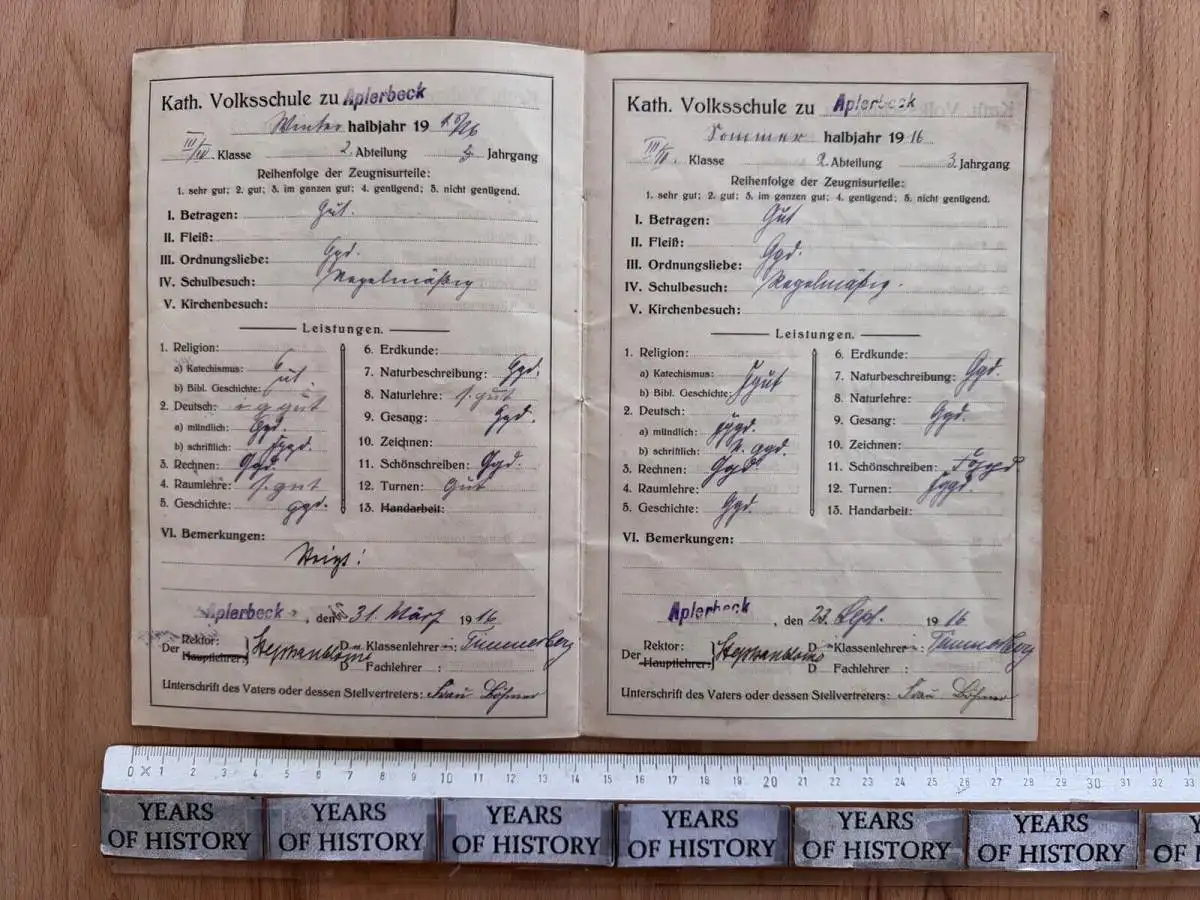 Kath. Volksschule zu Aplerbeck
Winter halbjahr 19 15/16
III/IV Klasse 2. Abteilung Jahrgang
Reihenfolge der Zeugnisurteile:
1. sehr gut; 2. gut; 3. im ganzen gut; 4. genügend; 5. nicht genügend.
I. Betragen: Gut.
II. Fleiß:
III. Ordnungsliebe: Ggd.
IV. Schulbesuch: Regelmäßig
V. Kirchenbesuch:
Leistungen.
1. Religion:
a) Katechismus: Gut.
b) Bibl. Geschichte:
2. Deutsch: i g gut
a) mündlich: Ggd.
b) schriftlich: Ggd.
3. Rechnen: Ggd.
4. Raumlehre: s. gut
5. Geschichte: ggd.
6. Erdkunde:
7. Naturbeschreibung: Ggd.
8. Naturlehre: s. gut
9. Gesang: Ggd.
10. Zeichnen:
11. Schönschreiben: Ggd.
12. Turnen: Gut
13. Handarbeit:
VI. Bemerkungen:
Aplerbeck, den 31. März 1916
Der Rektor: Hauptlehrer: D Klassenlehrer in: Timmerberg
D Fachlehrer :
Unterschrift des Vaters oder dessen Stellvertreters: Frau Böhmer
Kath. Volksschule zu Aplerbeck
Sommer halbjahr 19 16
III/IV. Klasse 2. Abteilung 3. Jahrgang
Reihenfolge der Zeugnisurteile:
1. sehr gut; 2. gut; 3. im ganzen gut; 4. genügend; 5. nicht genügend.
I. Betragen: Gut
II. Fleiß:
III. Ordnungsliebe: Ggd.
IV. Schulbesuch: Regelmäßig.
V. Kirchenbesuch:
Leistungen.
1. Religion:
a) Katechismus:
b) Bibl. Geschichte:
2. Deutsch:
a) mündlich:
b) schriftlich:
3. Rechnen: Ggd.
4. Raumlehre:
5. Geschichte: Ggd.
6. Erdkunde:
7. Naturbeschreibung: Ggd.
8. Naturlehre:
9. Gesang: Ggd.
10. Zeichnen:
11. Schönschreiben:
12. Turnen:
13. Handarbeit:
VI. Bemerkungen:
Aplerbeck, den 23. Sept. 1916
Der Rektor: Hauptlehrer: D Klassenlehrer in: Timmerberg
D Fachlehrer :
Unterschrift des Vaters oder dessen Stellvertreters: Frau Böhmer
0 1 2 3 4 5 6 7 8 9 10 11 12 13 14 15 16 17 18 19 20 21 22 23 24 25 26 27 28 29 30 31 32 33
YEARS OF HISTORY YEARS OF HISTORY YEARS OF HISTORY YEARS OF HISTORY YEARS OF HISTORY YEARS OF HISTORY